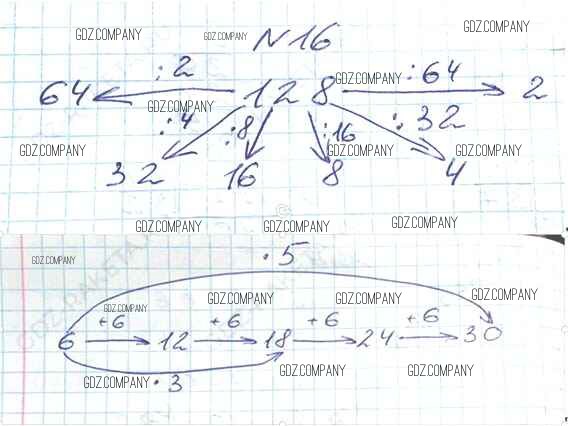 GDZ.COMPANY
GDZ.COMPANY GDZ.COMPANY N 16
:2 GDZ.COMPANY :64
64 128 2
GDZ.COMPANY :4 :8 :16 :32
GDZ.COMPANY GDZ.COMPANY GDZ.COMPANY
32 16 8 4
GDZ.COMPANY GDZ.COMPANY GDZ.COMPANY
GDZ.COMPANY ·5
GDZ.COMPANY GDZ.COMPANY GDZ.COMPANY GDZ.COMPANY
+6 +6 +6 +6
6 12 18 24 30
GDZ.COMPANY ·3 GDZ.COMPANY GDZ.COMPANY